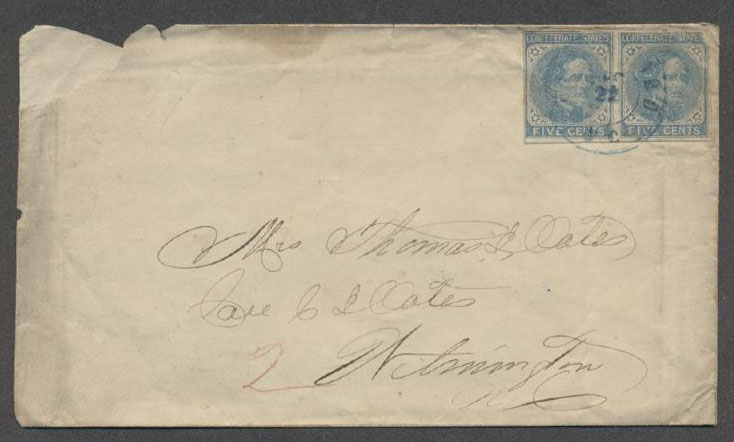 CONFEDERATE STATES CONFEDERATE STATES
22
FIVE CENTS FIVE CENTS
Mrs Thomas L Oates
Care C L Oates
2 Wilmington